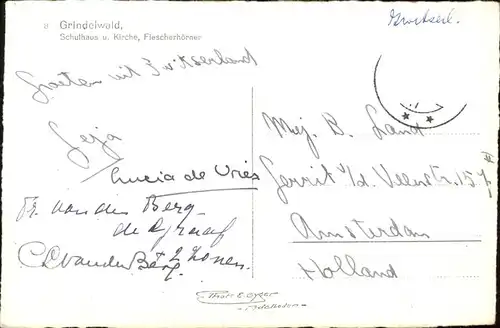 8 Grindelwald,
Schulhaus u. Kirche, Fiescherhörner
Zwitserl.
Groeten uit Zwitserland
Lucia de Vries
Fr. van den Berg-
de Graaf
C.C. van den Berg
2 zonen.
Mej. B.
Gerrit v/d. Veenstr. 157 III
Amsterdam
Holland
Adelboden